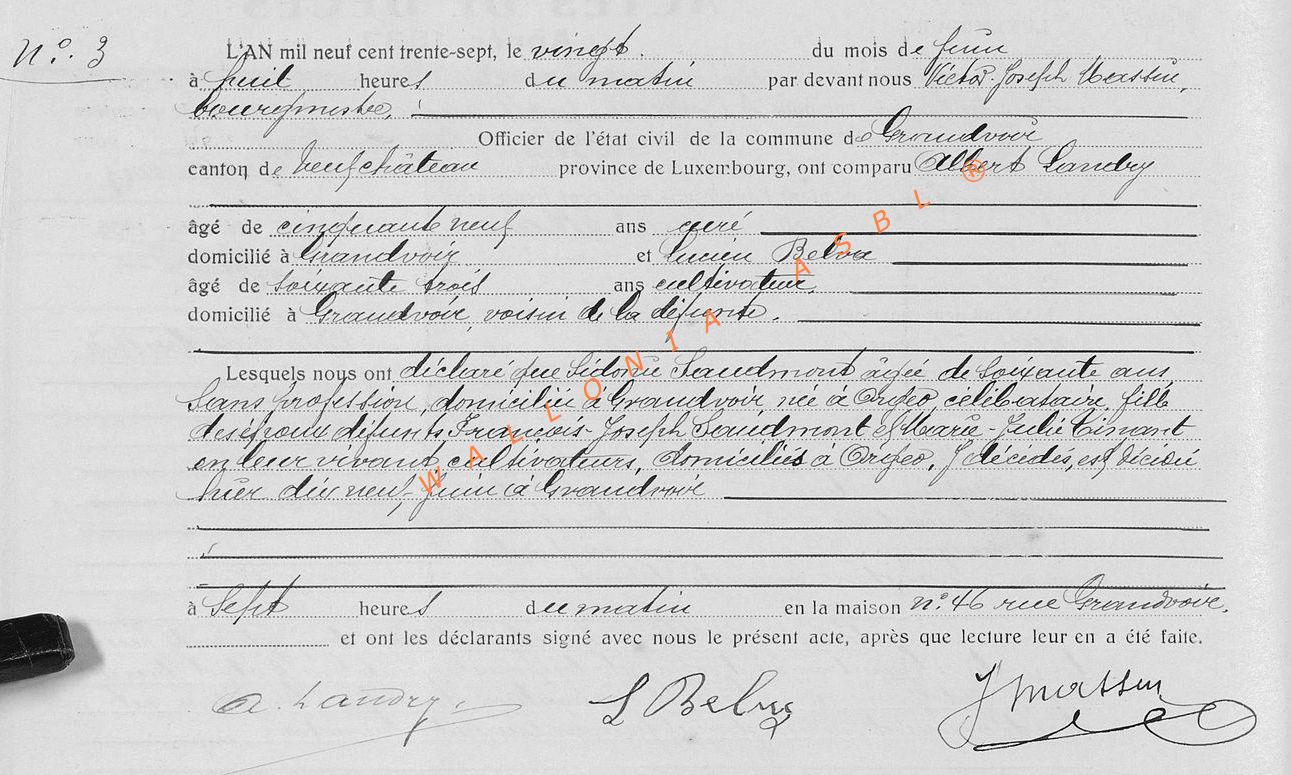 N°. 3
L'AN mil neuf cent trente-sept, le vingt. du mois de juin
à huit heures du matin par devant nous Victor Joseph Massin,
bourgmestre,
Officier de l'état civil de la commune de Grandvoir
canton de Neufchâteau province de Luxembourg, ont comparu Albert Landry
âgé de cinquante neuf ans curé
domicilié à Grandvoir et Lucien Belva
âgé de soixante trois ans cultivateur,
domicilié à Grandvoir, voisin de la défunte.
Lesquels nous ont déclaré que Sidonie Saudmont âgée de soixante ans
sans profession, domiciliée à Grandvoir née à Orgeo, célibataire, fille
des époux défunts François-Joseph Saudmont et Marie-Julie Tinant
en leur vivant cultivateurs, domiciliés à Orgeo, y décédés, est décédée
hier dix neuf juin à Grandvoir
à sept heures du matin en la maison n° 46 rue Grandvoir.
et ont les déclarants signé avec nous le présent acte, après que lecture leur en a été faite.
a. Landry. L Belva J Massin
WALLONIA ASBL ®